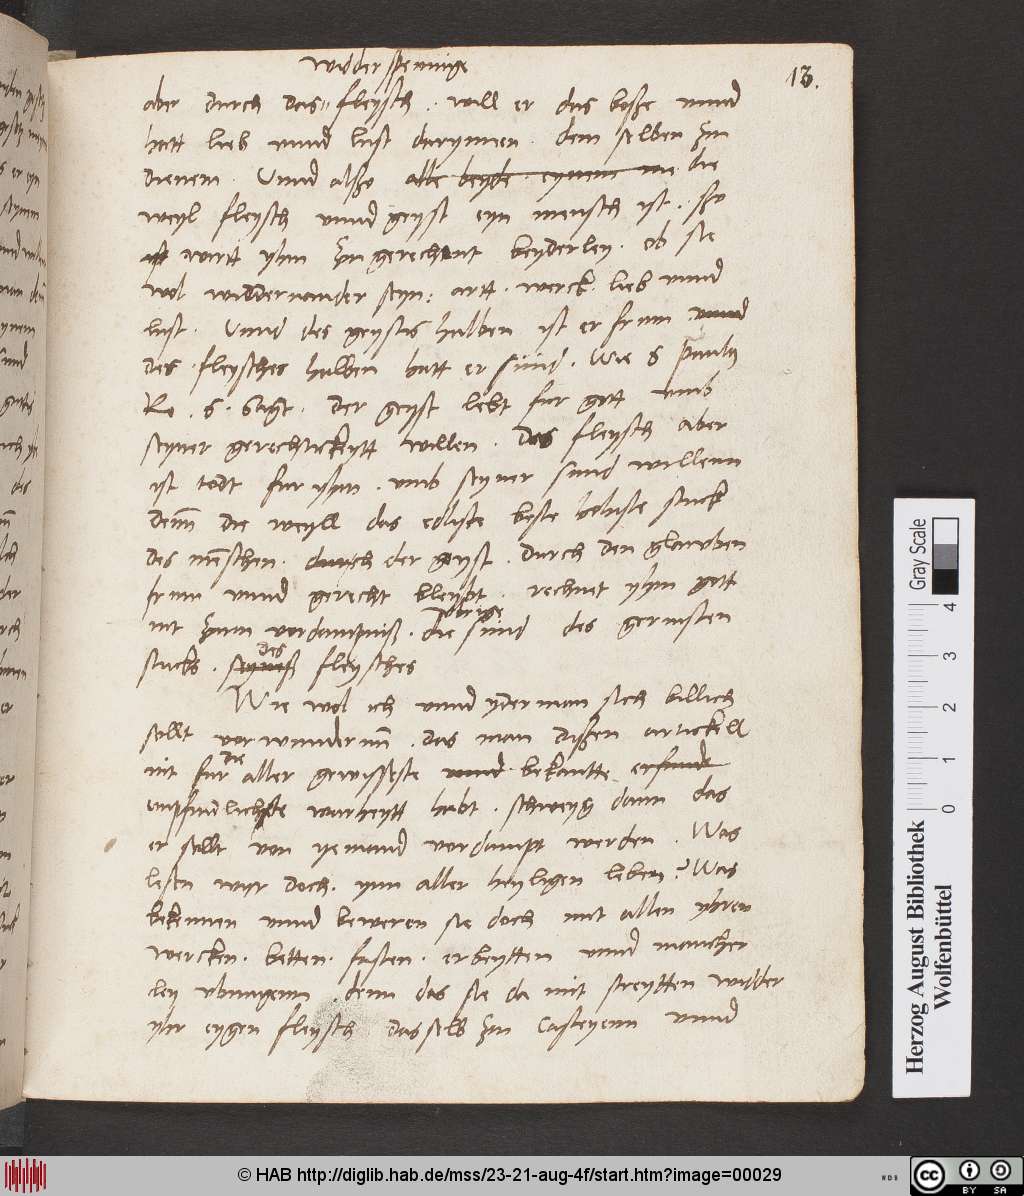 widderspennige
13.
aber durch das fleysch . will er das boße unnd
hatt lieb unnd lust darynnen . dem selben zu
dienem . Unnd alßo alle beyde . eynem die
weyl fleysch unnd geyst eyn mensch ist . ßo
wirtt yhm zu gerechent beyderley . ob sie
wol widdernander seyn : artt . werck . lieb unnd
lust . Unnd des geystis halben ist er frum unnd
des fleysches halben hatt er sund . Wie S paulus
Ro . 8 . Sagt . der geyst lebt fur gott umb
seyner gerechtickeytt willen . das fleysch aber
ist todt fur yhm . umb seyner sund willenn
denn die weyll das edliste beste hohiste stuck
des menschen . durch der geyst . durch den glawben
frum unnd gerecht bleybt . rechnet yhm gott
nit zum vordampniß . die ubrige sund des gerinsten
stucks . seyneß des fleysches
Wie wol ich unnd yderman sich billich
sollt vorwundernn . das man dißen artickell
nit fur die aller gewisseste unnd bekantte
empfindlichste warheytt habt . schweyg dann das
er sollt von yemand vordampt werden . Was
leßen wyr doch . ynn aller heyligen leben ? Was
bekennen unnd beweren sie doch mit allen yhren
wercken . betten . fasten . erbeytten unnd mancher
ley ubungenn . denn das sie da mit streytten widder
yhr eygen fleysch dasselb zu Casteyenn unnd
Gray Scale
0 1 2 3 4
Herzog August Bibliothek
Wolfenbüttel
© HAB http://diglib.hab.de/mss/23-21-aug-4f/start.htm?image=00029
WDB
cc BY SA